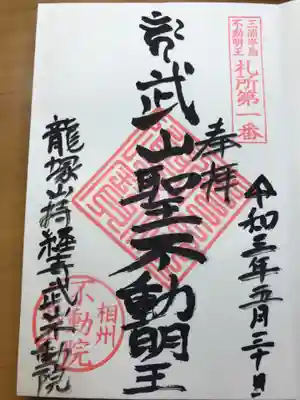 三浦半島
不動明王
札所第一番
令和三年五月三十日
奉拝
武山聖不動明王
龍塚山持経寺武山不動院
相州
不動院